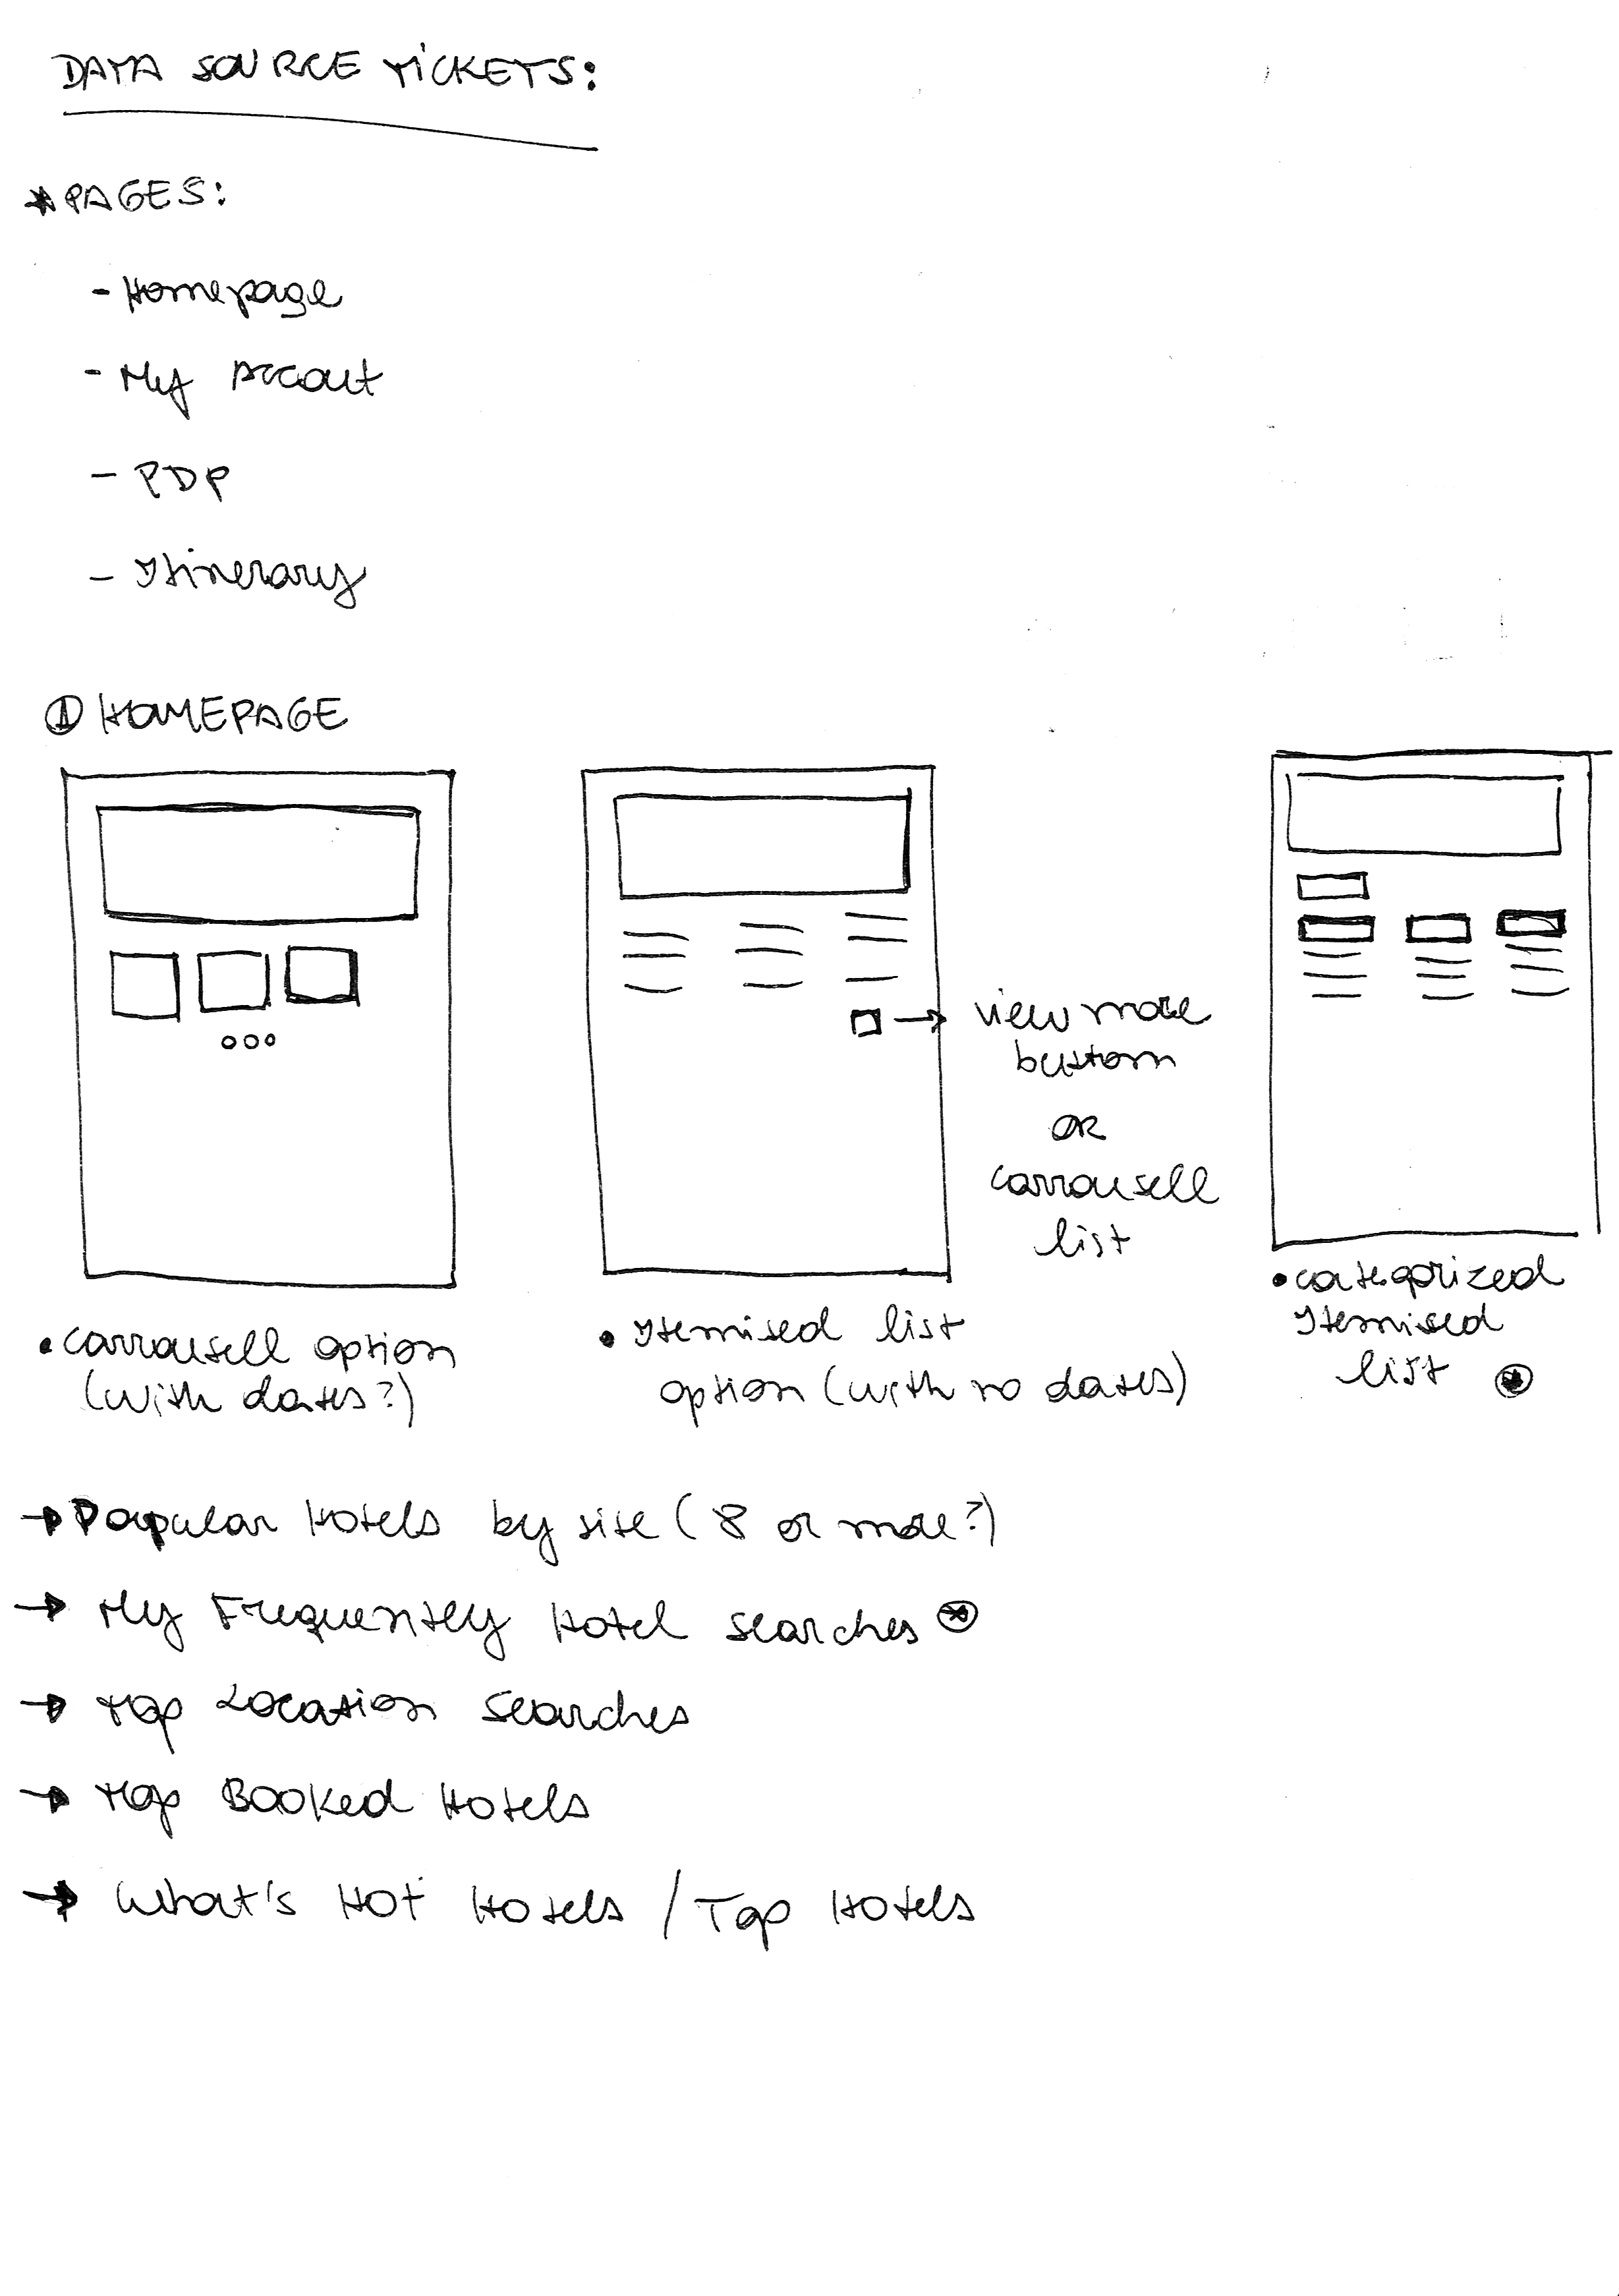 DATA SOURCE TICKETS:
* PAGES:
- Homepage
- My Accout
- PDP
- Itinerary
① HOMEPAGE
view more
buttom
OR
carrousell
list
• carrousell option
(with dates?)
• Itemised list
option (with no dates)
• categorized
Itemised
list ⊛
→ Popular Hotels by site (8 or more?)
→ My Frequently Hotel searches ⊛
→ Top Location Searches
→ Top Booked Hotels
→ What's Hot Hotels / Top Hotels